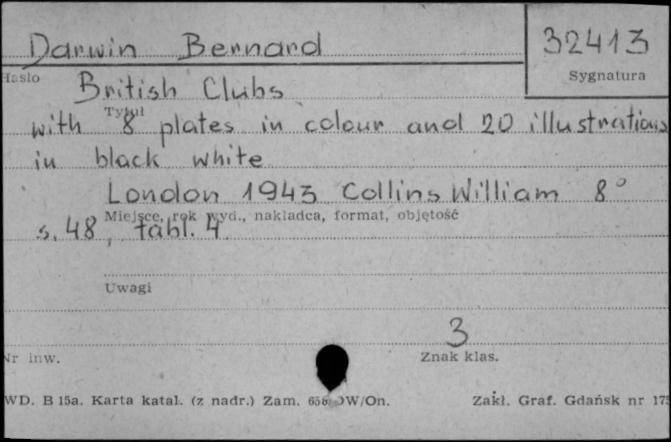 Darwin Bernard
32413
Hasło
Sygnatura
British Clubs
Tytuł
with 8 plates in colour and 20 illustrations
in black white
London 1943 Collins William 8°
Miejsce, rok wyd., nakładca, format, objętość
s. 48, tabl. 4
Uwagi
3
Nr inw.
Znak klas.
WD. B 15a. Karta katal. (z nadr.) Zam. OW/On.
Zakł. Graf. Gdańsk nr